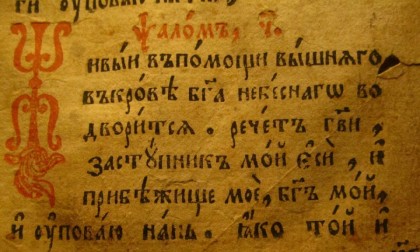 Ѱало́мъ, ч҃.
Живы́и въпо́мощи вы́шнѧго
въкро́вѣ бг҃а небе́снагѡ во
двори́тсѧ . рече́тъ гв҃и ,
застꙋ́пникъ мо́й є҆сѝ , и҆
прибѣ́жище моѐ, бг҃ъ мо́й ,
и҆ оу҆пова́ю на́нь . ꙗ҆́ко то́й и҆